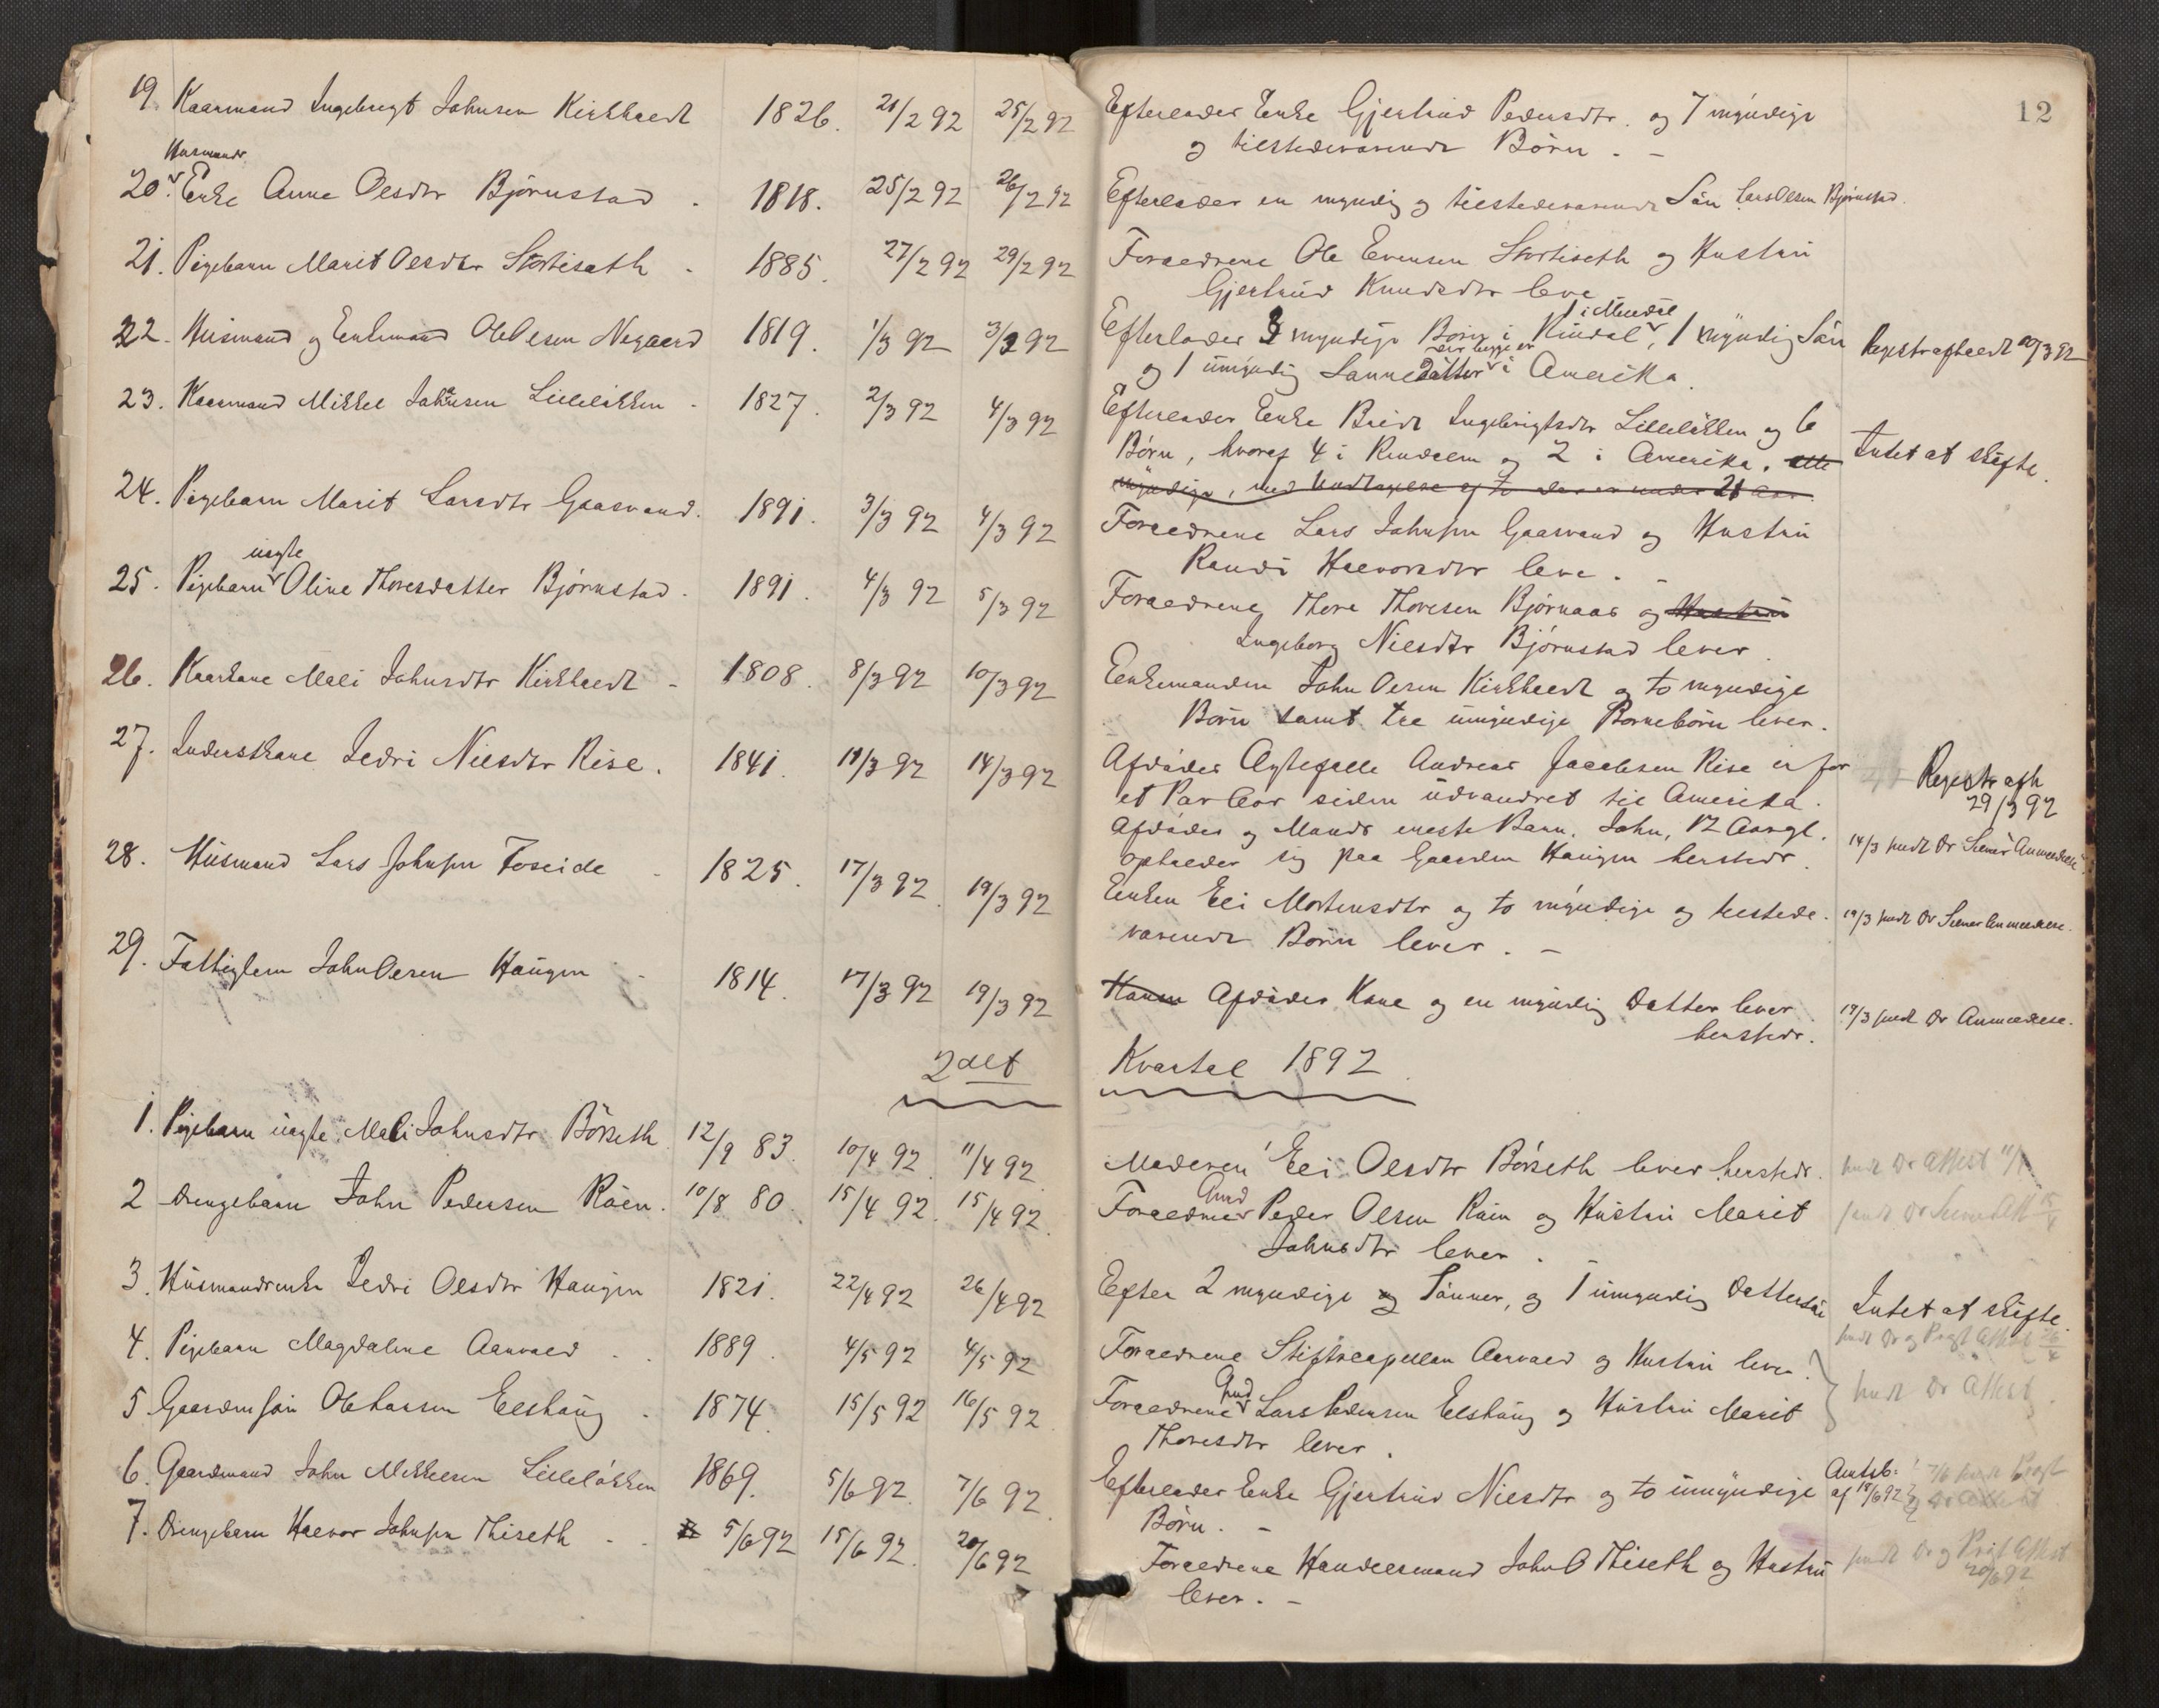 12
19. Kaarmand Ingebrigt Johnsen Kirkholdt 1826. 21/2 92 25/2 92 Efterlader Enke Gjertrud Pedersdtr. og 7 myndige
og tilstedeværende Børn. -
Husmands
20. Enke Anne Olsdtr Bjørnstad. 1818. 25/2 92 26/2 92 Efterlader en myndig og tilstedeværende Søn Lars Olsen Bjørnstad.
21. Pigebarn Marit Olsdtr Stortiseth. 1885. 27/2 92 29/2 92 Forældrene Ole Evensen Stortiseth og Hustru
Gjertrud Knudsdtr leve
1 i Meldal
22. Husmand og Enkemand Ole Olsen Negaard 1819. 1/3 92 3/3 92 Efterlader 3 myndige Børn i Rindal, 1 myndig Søn Registr afholdt 20/3 92
der begge er
og 1 umyndig Sønnedatter i Amerika.
23. Kaarmand Mikkel Johnsen Lilleløkken - 1827. 2/3 92 4/3 92 Efterlader Enke Brit Ingebrigtsdtr Lilleløkken og 6
Børn, hvoraf 4 i Rindalen og 2 i Amerika. alle Intet at skifte.
myndige, med Undtagelse af to der er under 21 Aar.
24. Pigebarn Marit Larsdtr Gaasvand. 1891. 3/3 92 4/3 92 Forældrene Lars Johnsen Gaasvand og Hustru
Randi Halvorsdtr leve. -
uægte
25. Pigebarn Oline Thoresdatter Bjørnstad. 1891. 4/3 92 5/3 92 Forældrene Thore Thoresen Bjørnaas og Hustru
Ingeborg Nilsdtr Bjørnstad lever.
26. Kaarkone Mali Johnsdtr Kirkholdt - 1808. 8/3 92 10/3 92 Enkemanden John Olsen Kirkholdt og to myndige
Børn samt tre umyndige Børnebørn lever.
27. Inderstkone Sedri Nilsdtr Rise. 1841. 11/3 92 14/3 92 Afdødes Ægtefælle Andreas Jacobsen Rise er for Registr afh
et Par Aar siden udvandret til Amerika. 29/3 92
Afdødes og Mands eneste Barn, John, 12 Aargl.
opholder sig paa Gaarden Haugen hersteds. 14/3 sendt Dr Anmeldelse
28. Husmand Lars Johnsen Foseide - 1825. 17/3 92 19/3 92 Enken Eli Mortensdtr og to myndige og tilstede- 19/3 sendt Dr Anmeldelse.
værende Børn lever. -
29. Fattiglem John Olsen Haugen - 1814. 17/3 92 19/3 92 Afdødes Kone og en myndig Datter lever 19/3 sendt Dr Anmeldelse.
hersteds.
2det Kvartal 1892.
1. Pigebarn uægte, Mali Johnsdtr Børseth 12/9 83. 10/4 92. 11/4 92. Moderen Eli Olsdtr Børseth lever hersteds. sendt Dr Attest 11/4
2 Drengebarn John Pedersen Røen. 10/8 80. 15/4 92. 15/4 92. Forældrene Gmd Peder Olsen Røen og Hustru Marit sendt Dr Att 15/4
Johnsdtr lever. -
3. Husmandsenke Sedri Olsdtr Haugen 1821. 22/4 92 26/4 92 Efter 2 myndige og Sønner, og 1 umyndig Dattersøn Intet at skifte.
sendt Dr og Prgt Attest 26/4
4. Pigebarn Magdalene Aarvold. 1889. 4/5 92 4/5 92 Forældrene Stiftscapellan Aarvold og Hustru lever.
sendt Dr Attest
5 Gaardmsøn Ole Larsen Elshaug. 1874. 15/5 92 16/5 92. Forældrene Gmd Lars Pedersen Elshaug og Hustru Marit
Thoresdtr lever.
6. Gaardmand John Mikkelsen Lilleløkken 1869. 5/6 92. 7/6 92. Efterlader Enke Gjertrud Nilsdtr og to umyndige Amtsb: af 18/6 92 7/6 sendt Prgt og Dr Attest
Børn. -
7. Drengebarn Halvor Johnsen Thiseth - 5/6 92 15/6 92. 20/6 92 Forældrene Handelsmand John O Thiseth og Hustru sendt Dr og Prgt Attest
lever. - 20/6 92